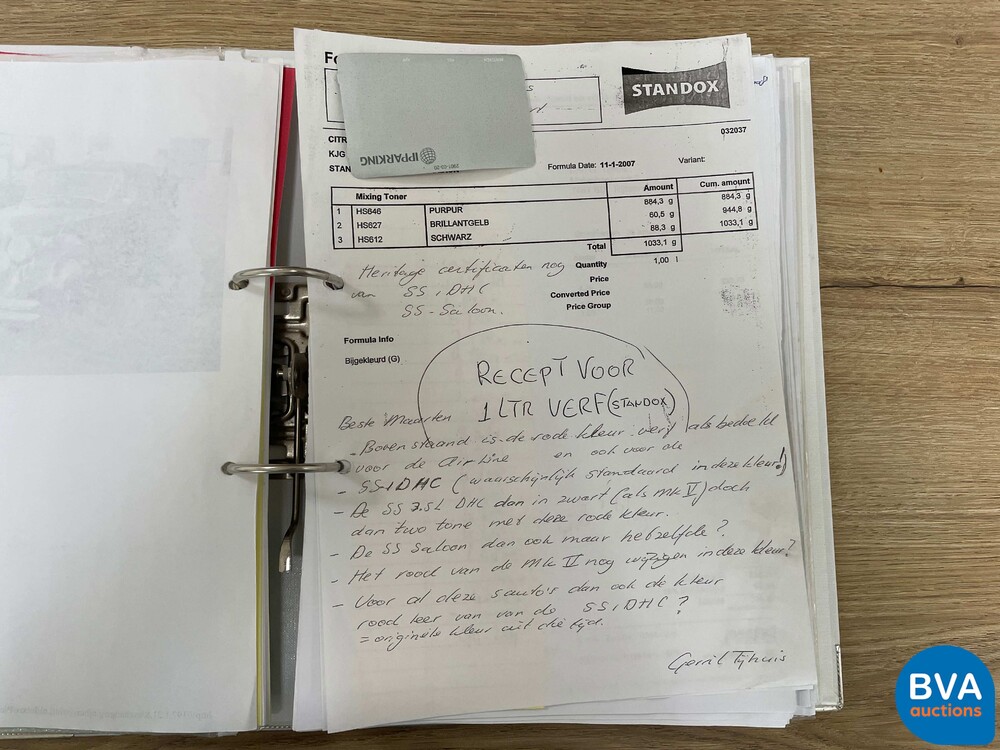 Fo
STANDOX
032037
CITR
KJG
STAN
IPPARKING
Formula Date: 11-1-2007
Variant:
Mixing Toner Amount Cum. amount
1 HS646 PURPUR 884,3 g 884,3 g
2 HS627 BRILLANTGELB 60,5 g 944,8 g
3 HS612 SCHWARZ 88,3 g 1033,1 g
Total 1033,1 g
Quantity 1,00 l
Price
Converted Price
Price Group
Heritage certificaten nog
van SS1 DHC
SS-Saloon.
Formula Info
Bijgekleurd (G)
RECEPT VOOR
1 LTR VERF (STANDOX)
Beste Maarten
- Bovenstaand is de rode kleur verf als bedoeld
voor de Airline en ook voor de
- SS1 DHC (waarschijnlijk standaard in deze kleur!)
- De SS 3.5L DHC dan in zwart (als MK V) doch
dan two tone met deze rode kleur.
- De SS Saloon dan ook maar hetzelfde?
- Het rood van de MK V nog wijzigen in deze kleur?
- Voor al deze 5 auto's dan ook de kleur
rood leer van van de SS1 DHC?
= originele kleur uit die tijd.
Gerrit Tijhuis
BVA
auctions